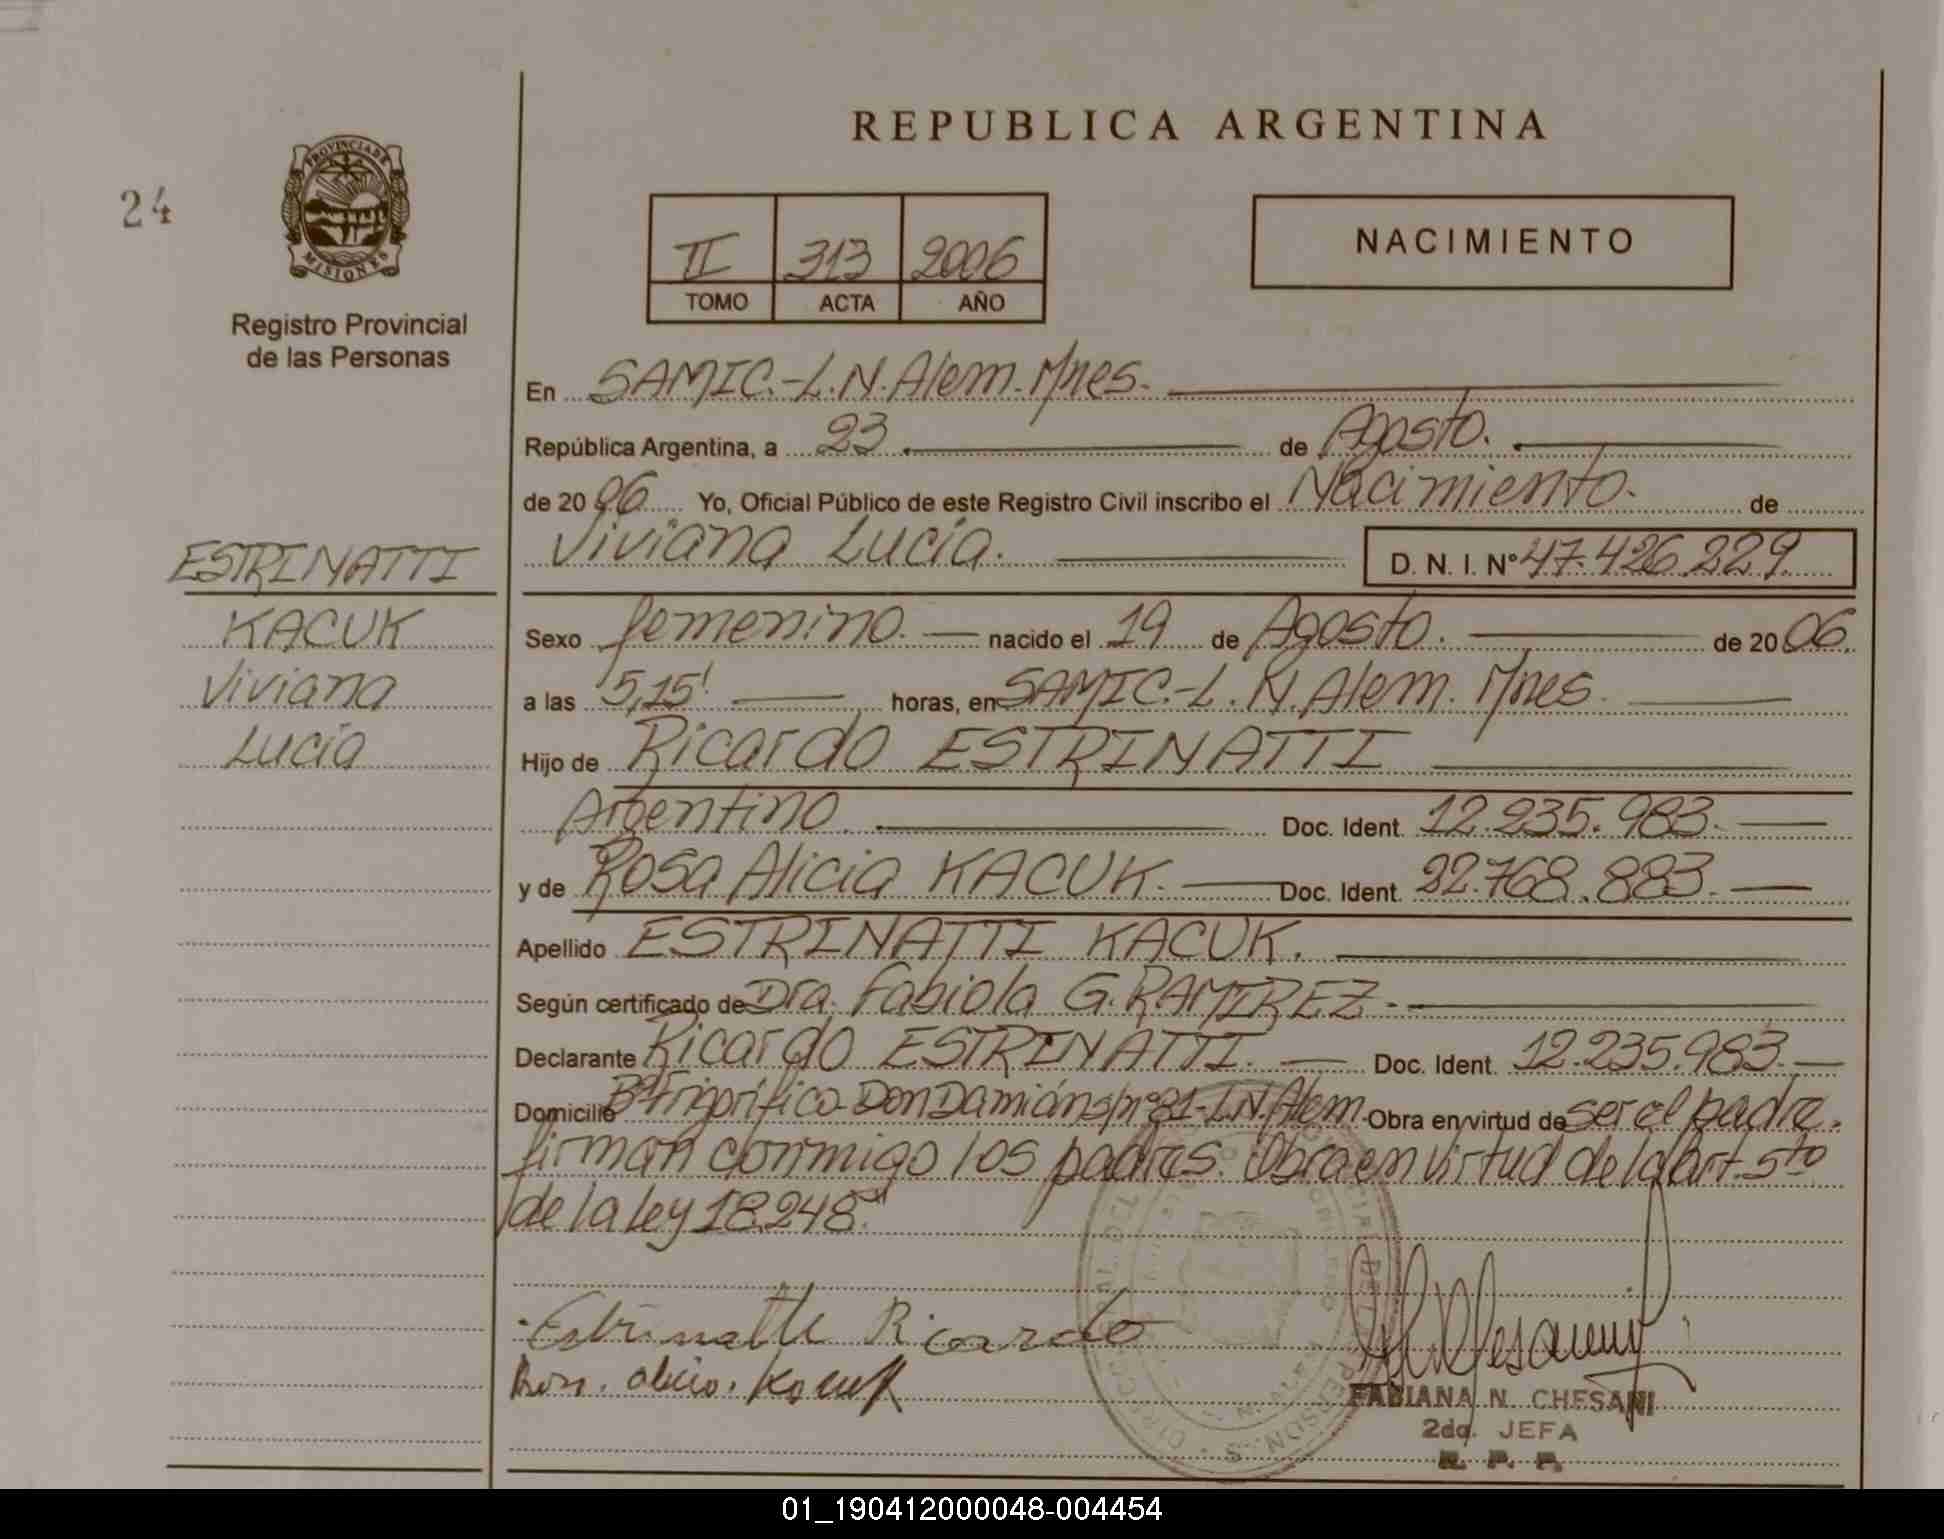 REPUBLICA ARGENTINA
24
PROVINCIA DE
MISIONES
Registro Provincial
de las Personas
II 313 2006
TOMO ACTA AÑO
NACIMIENTO
En SAMIC.-L.N.Alem. Mnes.
República Argentina, a 23 de Agosto.
de 2006 Yo, Oficial Público de este Registro Civil inscribo el Nacimiento. de
Viviana Lucía. D. N. I. Nº 47.426.229.
ESTRINATTI
KACUK
Viviana
Lucía
Sexo femenino. nacido el 19 de Agosto. de 2006.
a las 5,15' horas, en SAMIC.-L.N.Alem. Mnes.
Hijo de Ricardo ESTRINATTI
Argentino. Doc. Ident. 12.235.983.
y de Rosa Alicia KACUK. Doc. Ident. 22.768.883.
Apellido ESTRINATTI KACUK.
Según certificado de Dra. Fabiola G. RAMIREZ.
Declarante Ricardo ESTRINATTI. Doc. Ident. 12.235.983.
Domicilio Bº Frigorífico Don Damián s/nº 81-L.N.Alem. Obra en virtud de ser el padre.
firman conmigo los padres. Obra en virtud de la art. 5to
de la ley 18.248."
Estrinatti Ricardo
Rosa. alicia. Kacuk
FABIANA N. CHESANI
2da. JEFA
R. P. P.
01_190412000048-004454